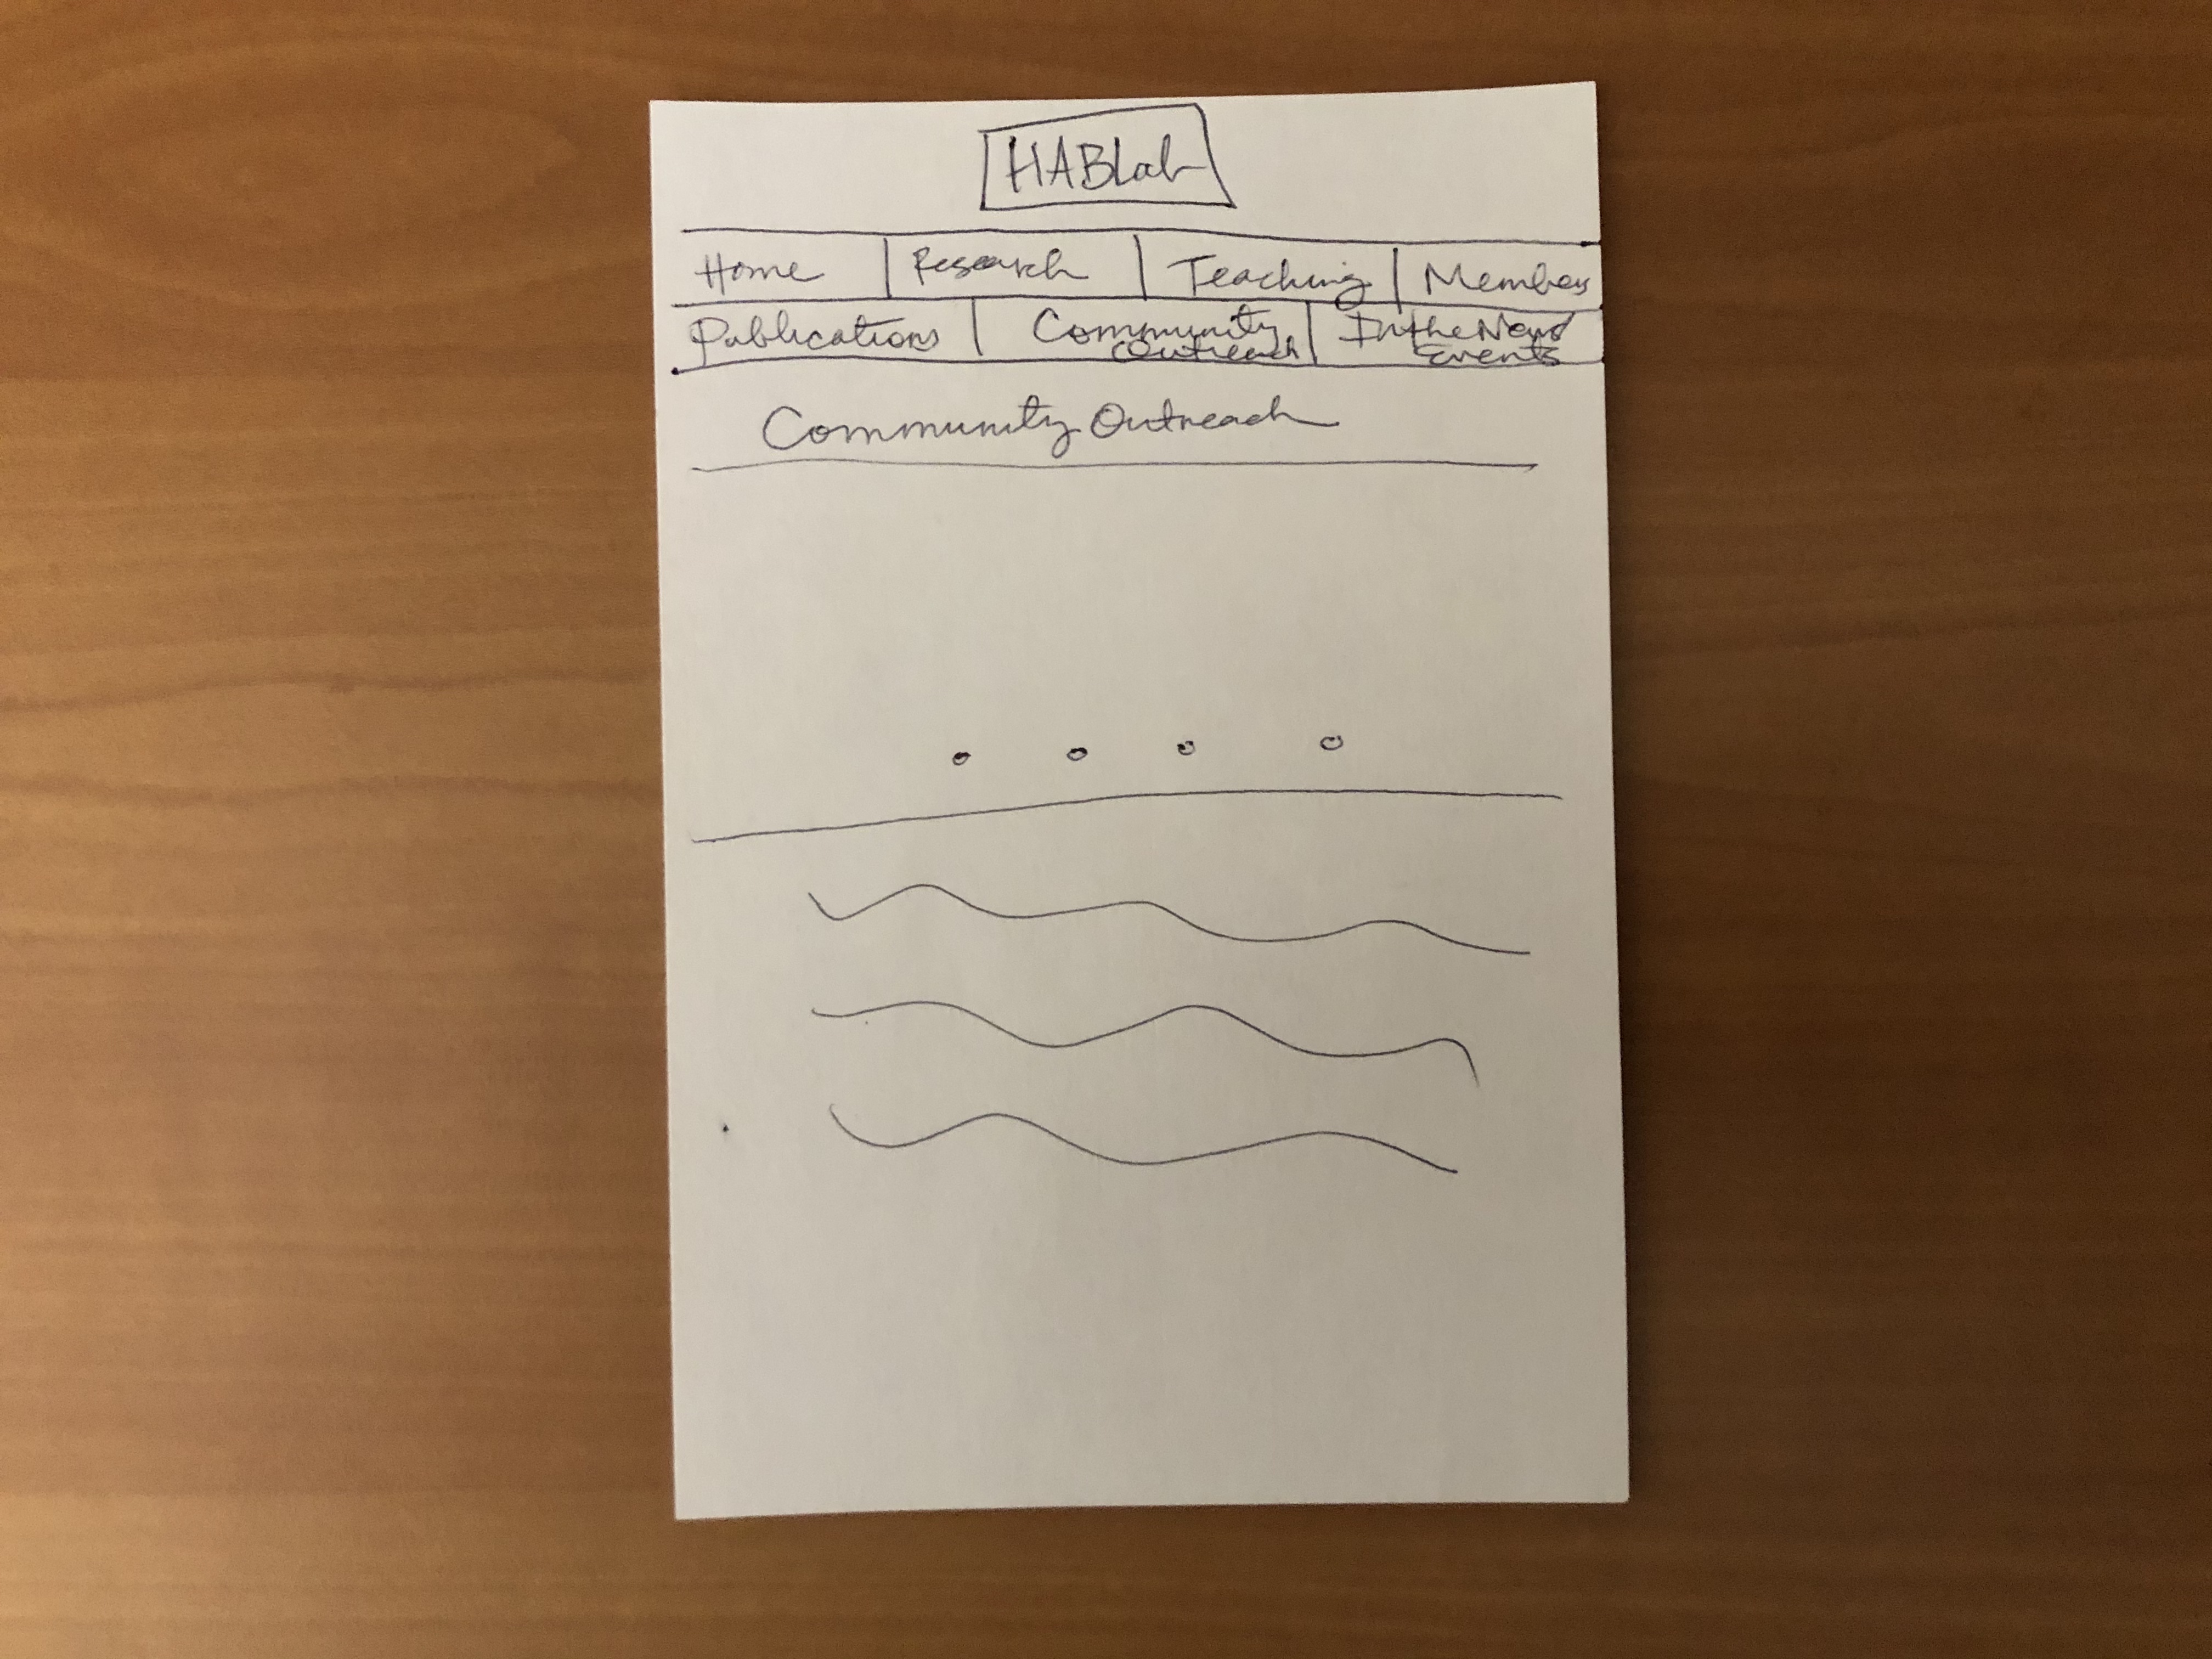 HABLab
Home Research Teaching Members
Publications Community In the News/
Outreach Events
Community Outreach